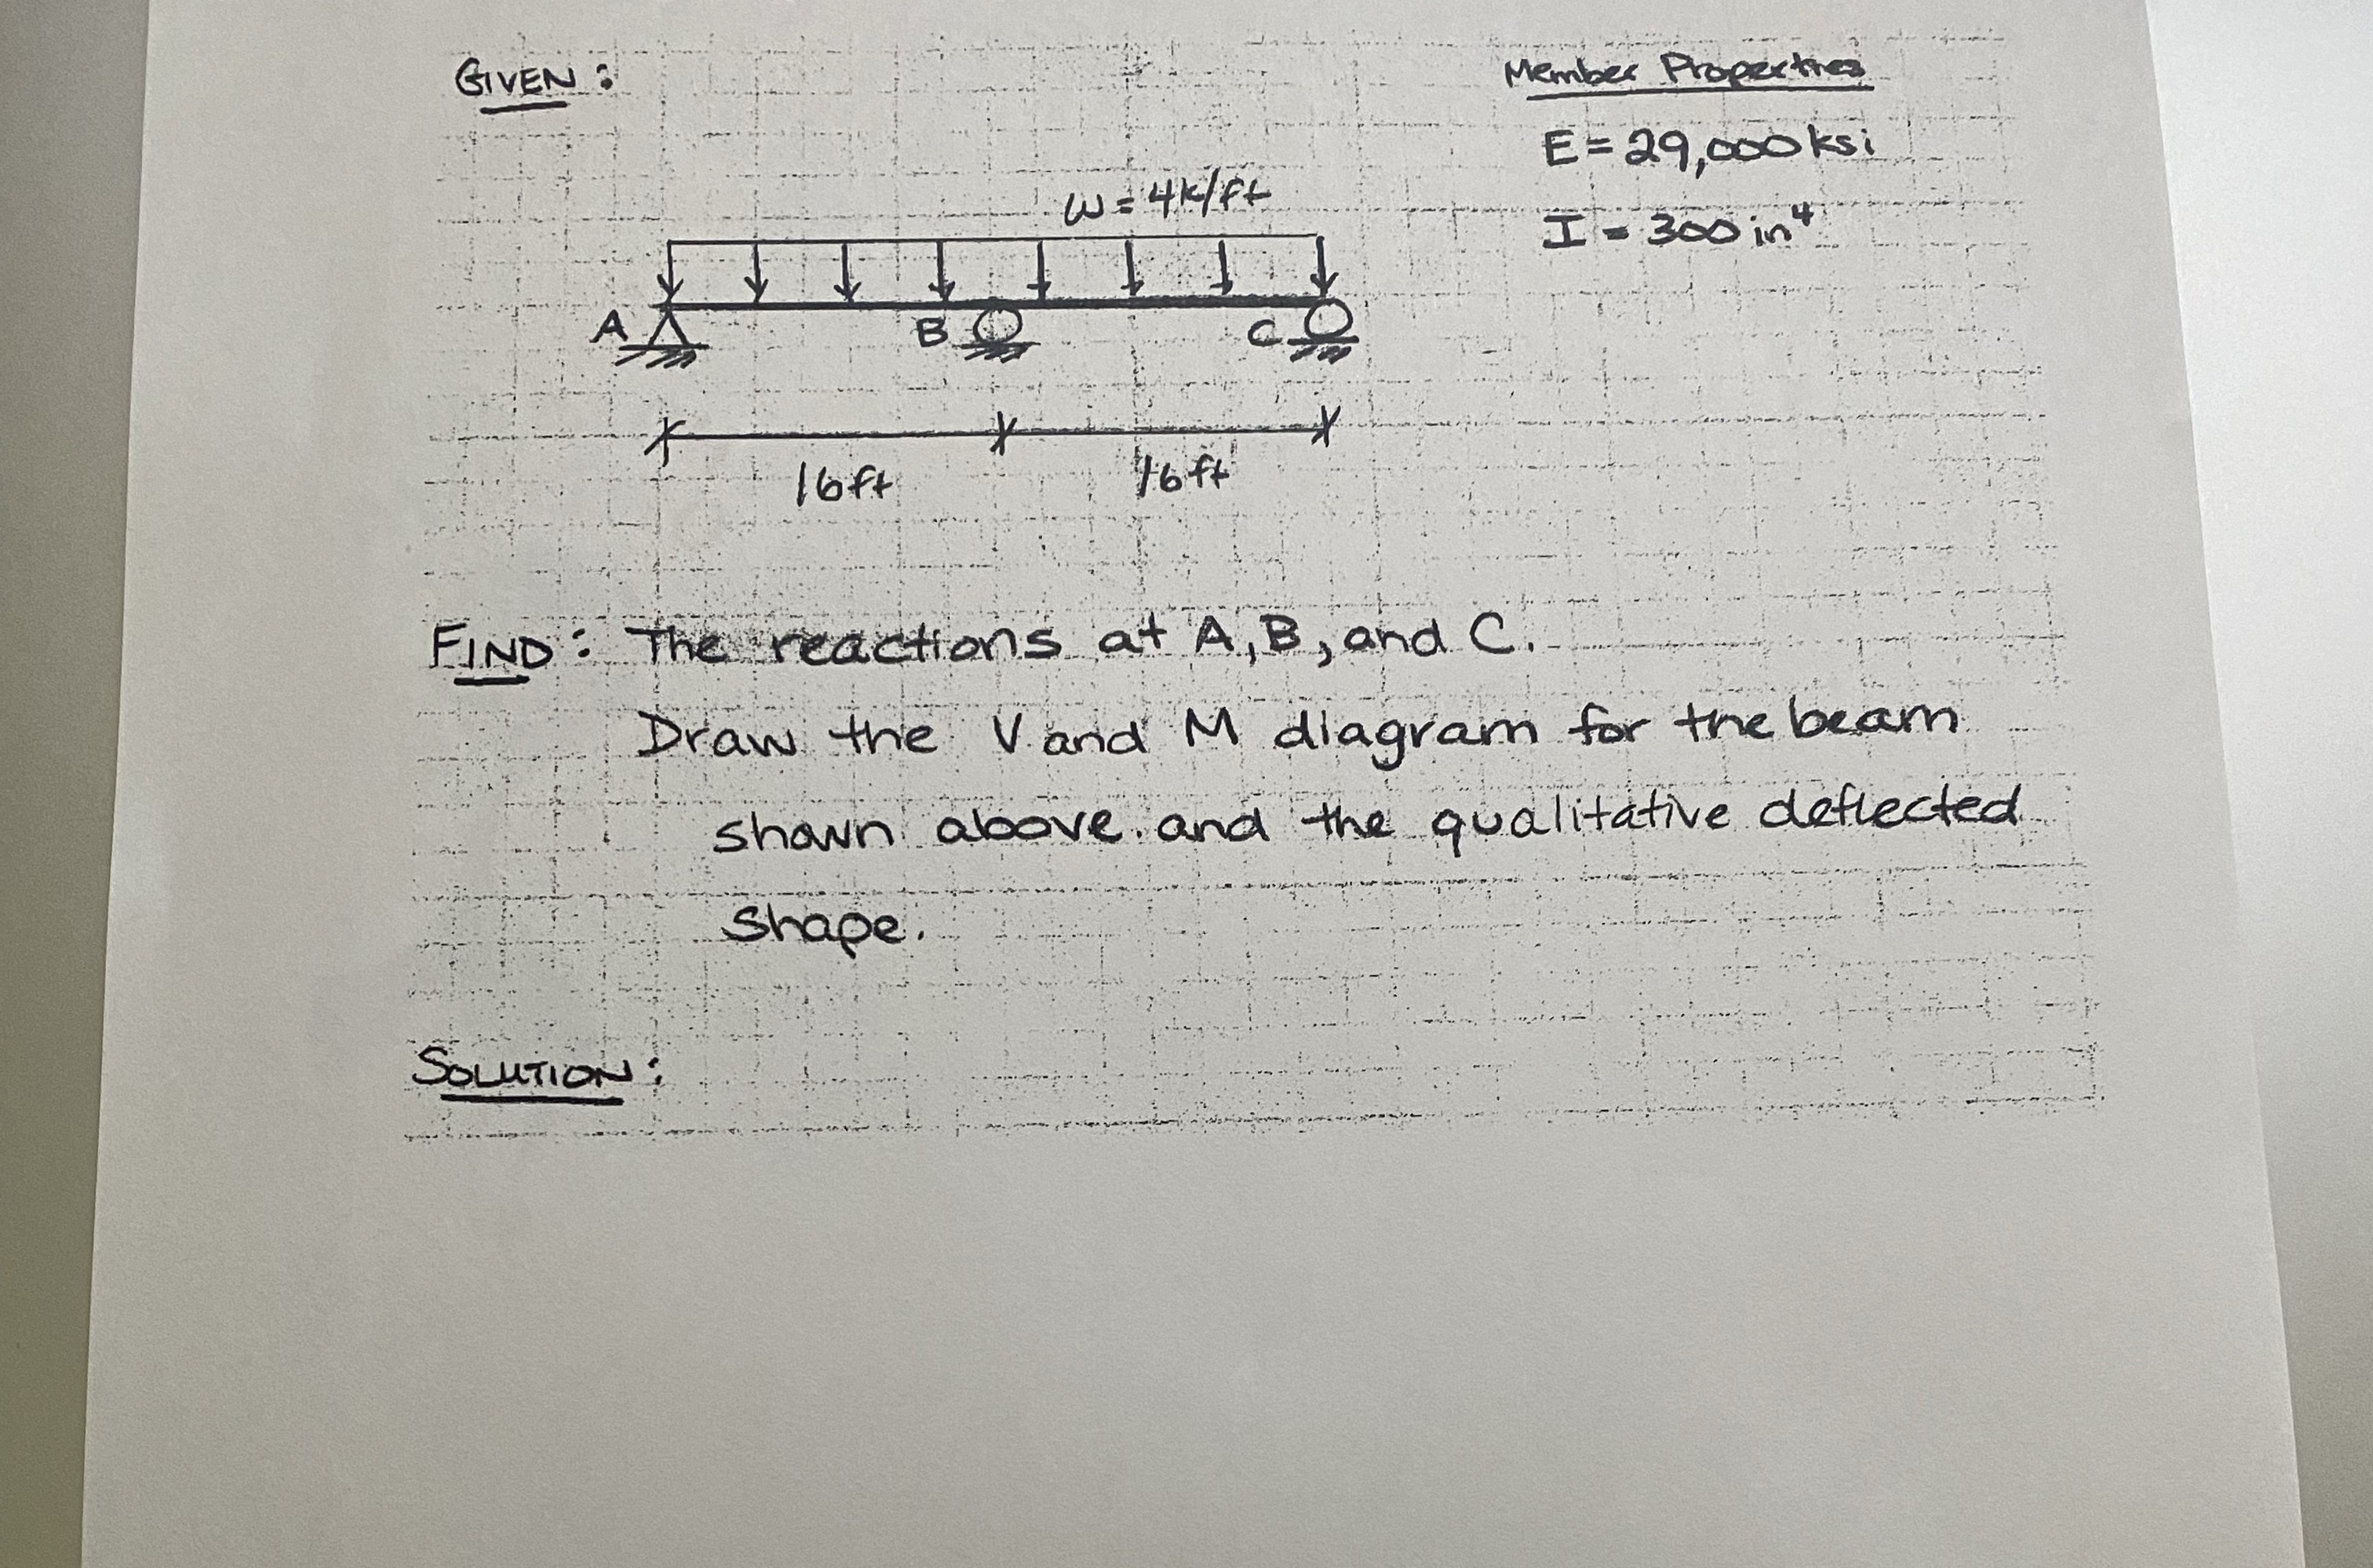 GIVEN:
Member Properties
E = 29,000 ksi
I = 300 in⁴
w = 4k/ft
A
B
C
16ft
16ft
FIND: The reactions at A, B, and C.
Draw the V and M diagram for the beam
shown above. and the qualitative deflected
shape.
SOLUTION: